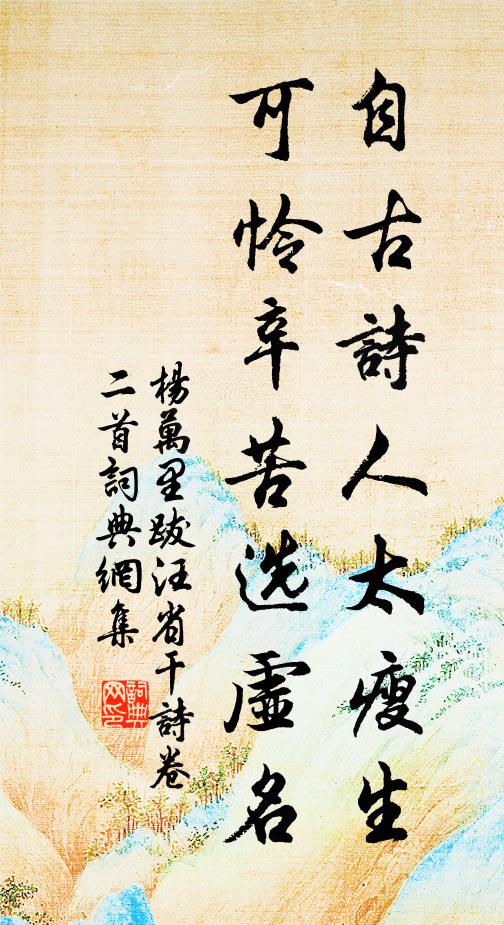 自古詩人太瘦生
可怜辛苦选虛名
楊萬里跋汪省干詩卷
二首詞典網集
詞典
网印